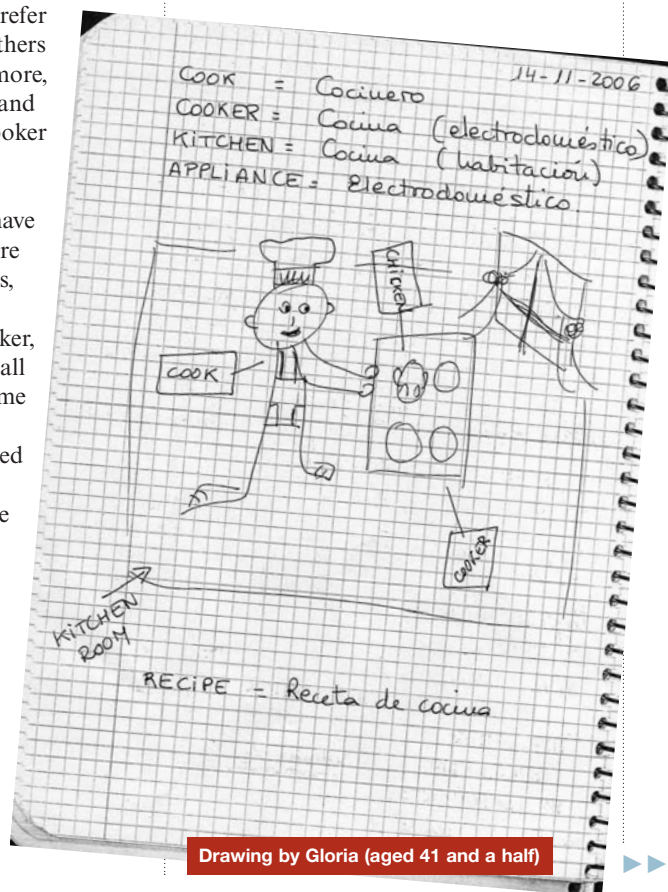 refer
thers
more,
and
ooker
have
re
s,
ker,
all
me
ed
e
14-11-2006
COOK = Cocinero
COOKER = Cocina (electrodoméstico)
KiTCHEN = Cocina (habitación)
APPLiANCE = Electrodoméstico.
CHICKEN
COOK
COOKER
KiTCHEN
ROOM
RECiPE = Receta de cocina
Drawing by Gloria (aged 41 and a half)